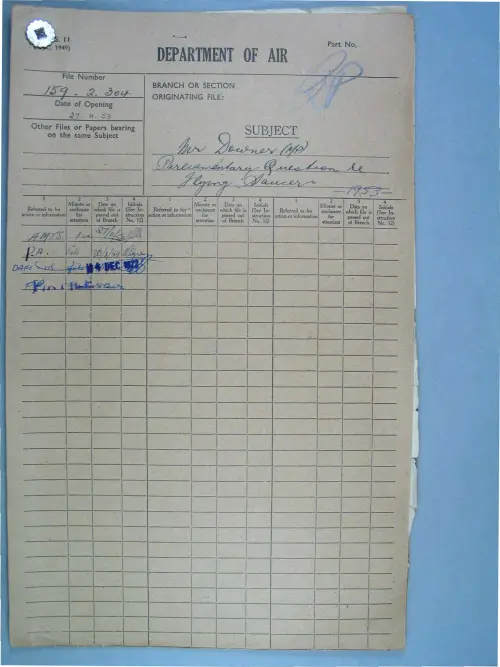 S. 11
1949)
Part No.
DEPARTMENT OF AIR
File Number
159. 2. 304
Date of Opening
27. 11. 53
Other Files or Papers bearing
on the same Subject
BRANCH OR SECTION
ORIGINATING FILE:
SUBJECT
Mr Downer (MP)
Parliamentary Question re
Flying Saucers 1953
1 2 3 4 1 2 3 4 1 2 3 4
Referred to for action or information
Minute or enclosure for attention
Date on which file is passed out of Branch
Initials (See Instruction No. 12)
Referred to for action or information
Minute or enclosure for attention
Date on which file is passed out of Branch
Initials (See Instruction No. 12)
Referred to for action or information
Minute or enclosure for attention
Date on which file is passed out of Branch
Initials (See Instruction No. 12)
AMTS.
4 DEC